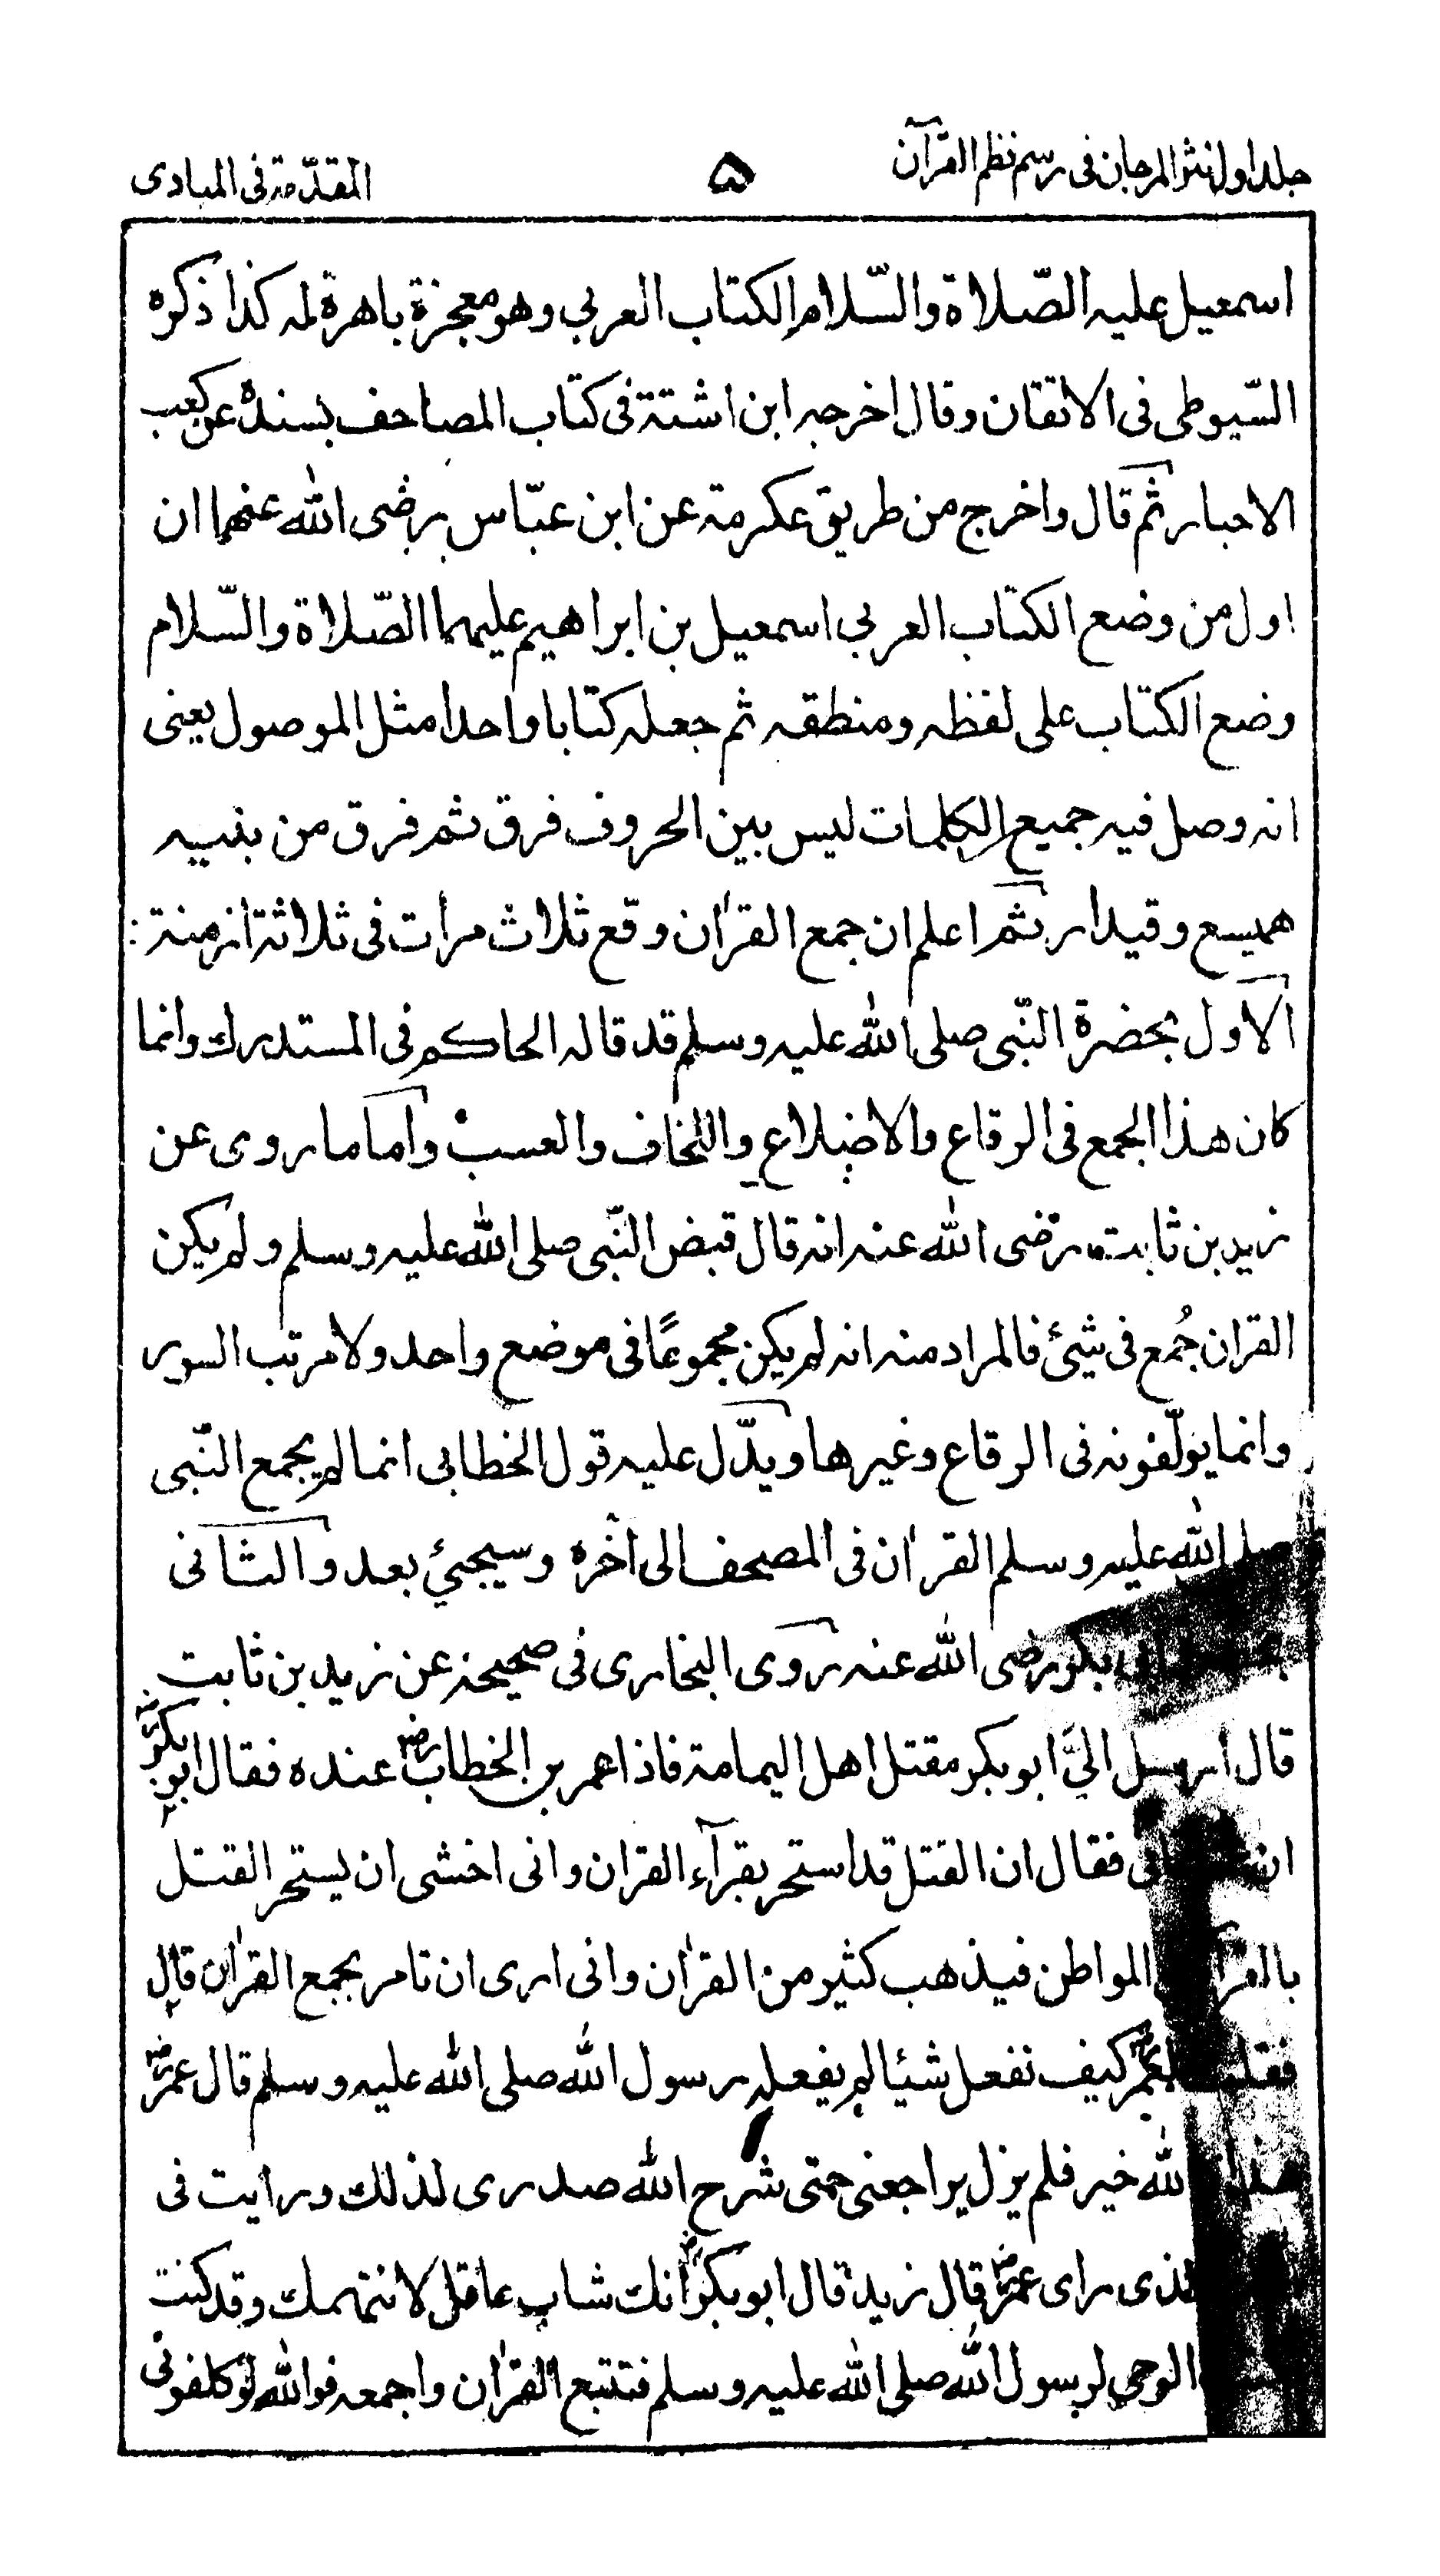 جلد اول نثر المرجان فی رسم نظم القرآن
۵
المقدّمة فی المبادی
اسمعيل عليه الصّلاة والسّلام الكتاب العربي وهو معجزة باهرة له كذا ذكره
السّيوطي في الاتقان وقال اخرجه ابن اشتة في كتاب المصاحف بسنده عن كعب
الاحبار ثم قال واخرج من طريق عكرمة عن ابن عبّاس رضی الله عنهما ان
اول من وضع الكتاب العربي اسمعيل بن ابراهيم عليهما الصّلاة والسّلام
وضع الكتاب على لفظه ومنطقه ثم جعله كتابا واحدا مثل الموصول يعنى
انه وصل فيه جميع الكلمات ليس بين الحروف فرق ثم فرق من بنييه
هميسع وقيدار ثم اعلم ان جمع القران وقع ثلاث مرات فى ثلاثة ازمنة :
الاول بحضرة النّبى صلى الله عليه وسلم قد قاله الحاكم فى المستدرك وانما
كان هذا الجمع فى الرقاع والاضلاع واللخاف والعسب واما ما روى عن
زيد بن ثابت رضى الله عنه انه قال قبض النّبى صلى الله عليه وسلم ولم يكن
القران جُمع فى شئ فالمراد منه انه لم يكن مجموعًا فى موضع واحد ولا مرتب السور
وانما يؤلّفونه فى الرقاع وغيرها ويدّل عليه قول الخطابى انما لم يجمع النّبى
صلى الله عليه وسلم القران فى المصحف الى اخره وسيجيئ بعد والثانى
ابى بكر رضى الله عنه روى البخارى فى صحيحه عن زيد بن ثابت
قال ارسل اليَّ ابو بكر مقتل اهل اليمامة فاذا عمر بن الخطابؓ عنده فقال ابو بكرؓ
ان فقال ان القتل قد استحر بقرآء القران وانى اخشى ان يستحر القتل
المواطن فيذهب كثير من القران وانى ارى ان تامر بجمع القران قال
لعمرؓ كيف نفعل شيئا لم يفعله رسول الله صلى الله عليه وسلم قال عمرؓ
الله خير فلم يزل يراجعنى حتى شرح الله صدرى لذلك ورايت فى
الذى راى عمرؓ قال زيد قال ابو بكرؓ انك شاب عاقل لا نتهمك وقد كنت
الوحي لرسول الله صلى الله عليه وسلم فتتبع القران واجمعه فوالله لو كلفونى